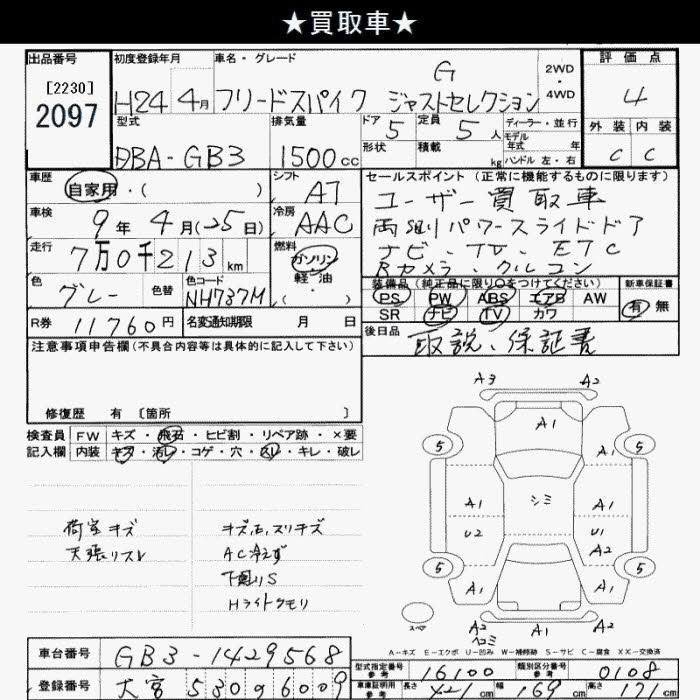 ★買取車★
出品番号 初度登録年月 車名・グレード 評価点
[2230]
2097
H24 4月 フリードスパイク G ジャストセレクション
2WD・4WD
4
型式 排気量 ドア 5 定員 5人 ディーラー・並行
モデル年式 年
外装 内装
DBA-GB3 1500cc 形状 積載 kg ハンドル 左・右
C C
車歴 シフト セールスポイント(正常に機能するものに限ります)
自家用・( ) AT
ユーザー買取車
車検 9年4月(25日) 冷房 AAC
両側パワースライドドア
走行 7万0千213km 燃料 ガソリン・軽油・( )
ナビ、TV、ETC
Bカメラ、クルコン
色 グレー 色替 色コード NH737M
装備品(純正品に限り○をつけてください) 新車保証書
PS PW ABS エアB AW 有 無
SR ナビ TV カワ
R券 11760円 名変通知期限 月 日
後日品 取説、保証書
注意事項申告欄(不具合内容等は具体的に記入して下さい)
修復歴 有 〔箇所 〕
検査員記入欄 FW キズ・飛石・ヒビ割・リペア跡・×要
内装 キズ・汚レ・コゲ・穴・スレ・キレ・破レ
荷室キズ
天張リスレ
キズ、E、スリキズ
AC冷えず
下廻りS
Hライトクモリ
A3 A2
A1
5 A1 5
A1 シミ A1
U2 U1
A2
5 A1 A1 5
スペア
A2 A1 A2
ヘコミ
A-キズ E-エクボ U-凹み W-補修跡 S-サビ C-腐食 XX-交換済
車台番号 GB3-1429568
型式指定番号 参考 16100 類別区分番号 参考 0108
登録番号 大宮 530 6009
車庫証明用 参考 長さ 421cm 幅 169cm 高さ 171cm